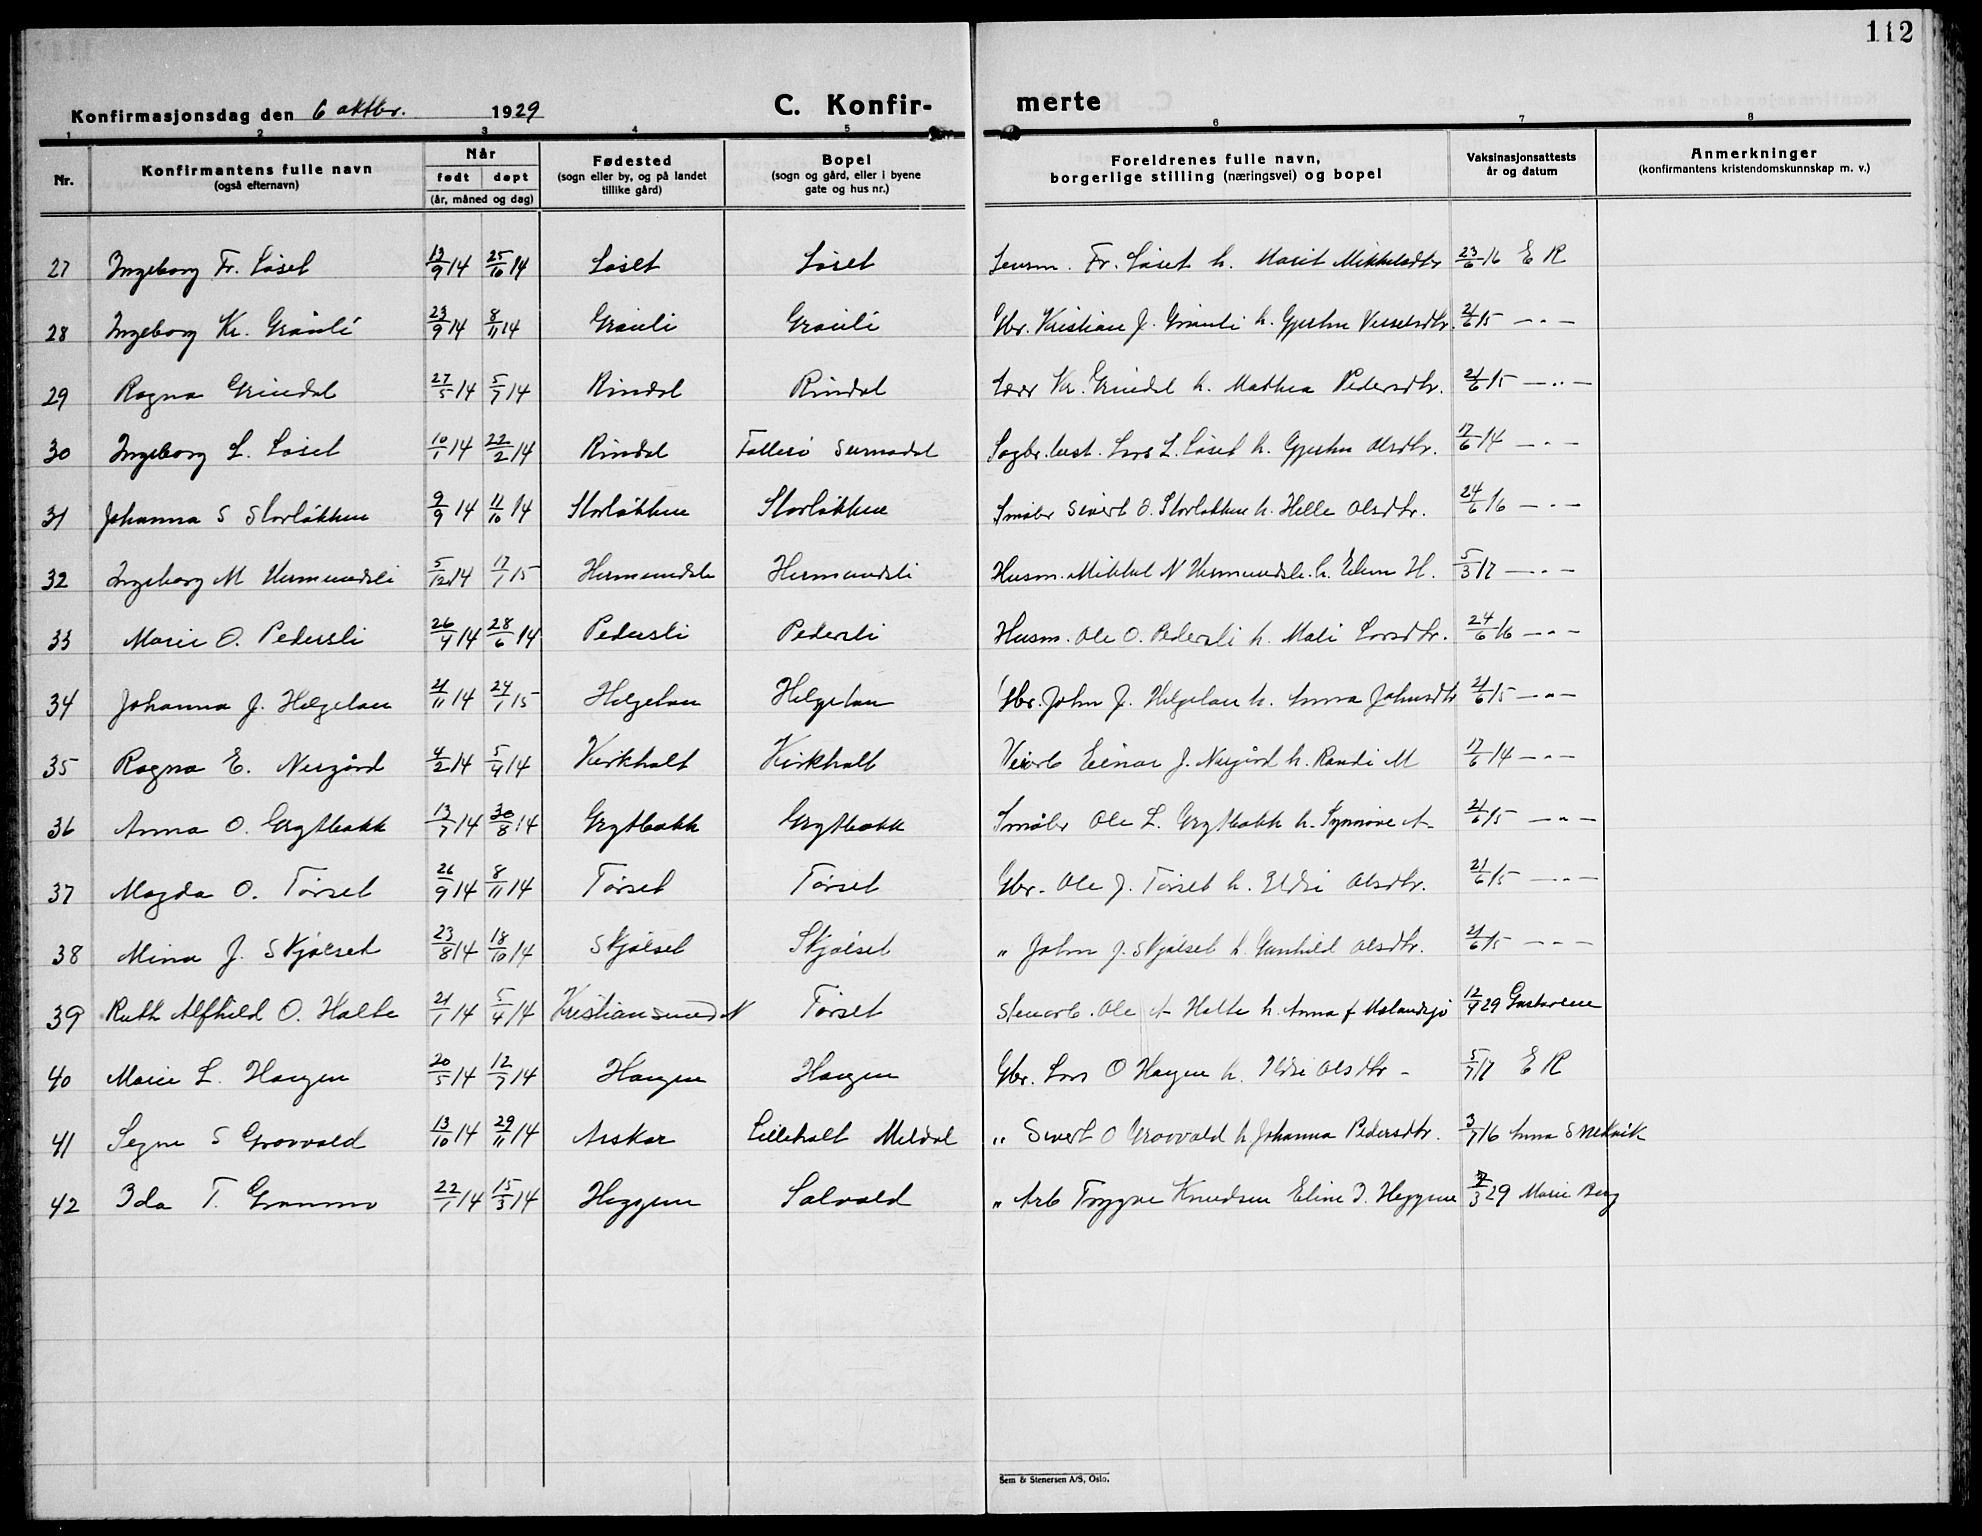 112
Konfirmasjonsdag den 6 oktbr. 1929 C. Konfir- merte
1 2 3 4 5 6 7 8
Nr. Konfirmantens fulle navn (også efternavn) Når født døpt (år, måned og dag) Fødested (sogn eller by, og på landet tillike gård) Bopel (sogn og gård, eller i byene gate og hus nr.) Foreldrenes fulle navn, borgerlige stilling (næringsvei) og bopel Vaksinasjonsattests år og datum Anmerkninger (konfirmantens kristendomskunnskap m. v.)
27 Ingeborg Fr. Løset 13/9 14 25/10 14 Løset Løset Lensm. Fr. Løset h. Marit Mikkelsdtr 23/6 16 E R
28 Ingeborg Kr. Grønli 23/9 14 8/11 14 Grønli Grønli Gbr. Kristian J. Grønli h. Gjertru 21/6 15 — " —
29 Ragna Grindal 27/5 14 5/7 14 Rindal Rindal Lærer Kr. Grindal h. Mathea Pedersdtr. 21/6 15 — " —
30 Ingeborg L. Løset 10/1 14 22/2 14 Rindal Surnadal Lars L. Løset h. Gjertru Olsdtr. 17/6 14 — " —
31 Johanna S Storløkken 9/9 14 11/10 14 Storløkken Storløkken Småbr Sivert O. Storløkken h. Helle Olsdtr. 24/6 16 — " —
32 Ingeborg M Hermundsli 5/12 14 17/1 15 Hermundsli Hermundsli Husm. Mikkel N Hermundsli h. Elen H. 5/3 17 — " —
33 Marie O. Pedersli 26/4 14 28/6 14 Pedersli Pedersli Husm. Ole O. Pedersli h. Mali Larsdtr. 24/6 16 — " —
34 Johanna J. Helgetun 21/11 14 24/1 15 Helgetun Helgetun Gbr. John J. Helgetun h. Anna Johnsdtr 21/6 15 — " —
35 Ragna E. Nergård 4/2 14 5/4 14 Kirkholt Kirkholt Einar J. Nergård h. Randi M 17/6 14 — " —
36 Anna O. Grytbakk 13/7 14 30/8 14 Grytbakk Grytbakk Småbr Ole L. Grytbakk h. Synnøve A- 21/6 15 — " —
37 Magda O. Tørset 26/9 14 8/11 14 Tørset Tørset Gbr. Ole J. Tørset h. Ildri Olsdtr. 21/6 15 — " —
38 Mina J. Skjølset 23/8 14 18/10 14 Skjølset Skjølset " John J. Skjølset h. Gunhild Olsdtr. 21/6 15 — " —
39 Ruth Alfhild O. Halte 21/1 14 5/4 14 Kristiansund N Tørset Stenarb. Ole A Halte h. Anna f 12/4 29 Gustavsen
40 Marie L. Haugen 20/5 14 12/7 14 Haugen Haugen Gbr. Lars O Haugen h. Ildri Olsdtr - 5/7 17 E R
41 Segne S Grovvald 13/10 14 29/11 14 Aaskar Lilleholt Meldal " Sivert O Groovald h Johanna Pedersdtr. 3/7 16 Anna
42 Ida T. Grammo 22/1 14 15/3 14 Heggem Solvold " Arb Trygve Knudsen Eline I. Heggem 2/3 29 Marie Berg
Sem & Stenersen A/S, Oslo.